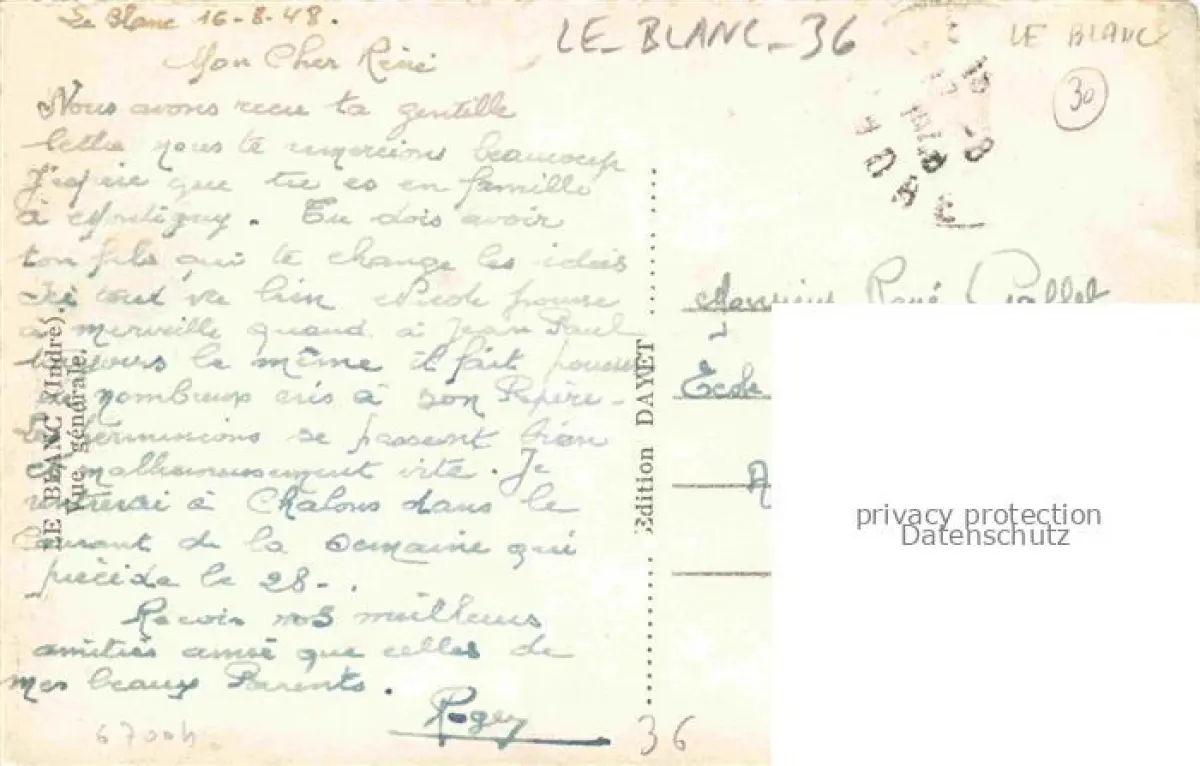 Le Blanc 16-8-48.
Mon Cher Réné
Nous avons reçu ta gentille
lettre nous te remercions beaucoup
J'espère que tu es en famille
à Montigny. Tu dois avoir
ton fils qui te change les idées
Ici tout va bien Nicole pousse
à merveille quand à Jean Paul
toujours le même il fait pousser
de nombreux cris à son Pépère-
Les permissions se passent bien
malheureusement vite. Je
rentrerai à Chalons dans le
courant de la semaine qui
précède le 28-.
Reçois nos meilleurs
amitiés ainsi que celles de
mes beaux Parents.
Roger
67004.
36
LE BLANC (Indre).
Vue générale.
Edition DAYET
LE_BLANC_36
LE BLANC
30
Monsieur René
Ecole
privacy protection
Datenschutz